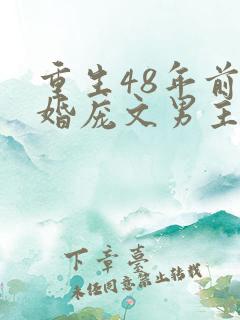 重生48年前
婚庞文男主
下章墓
未经同意禁止转载